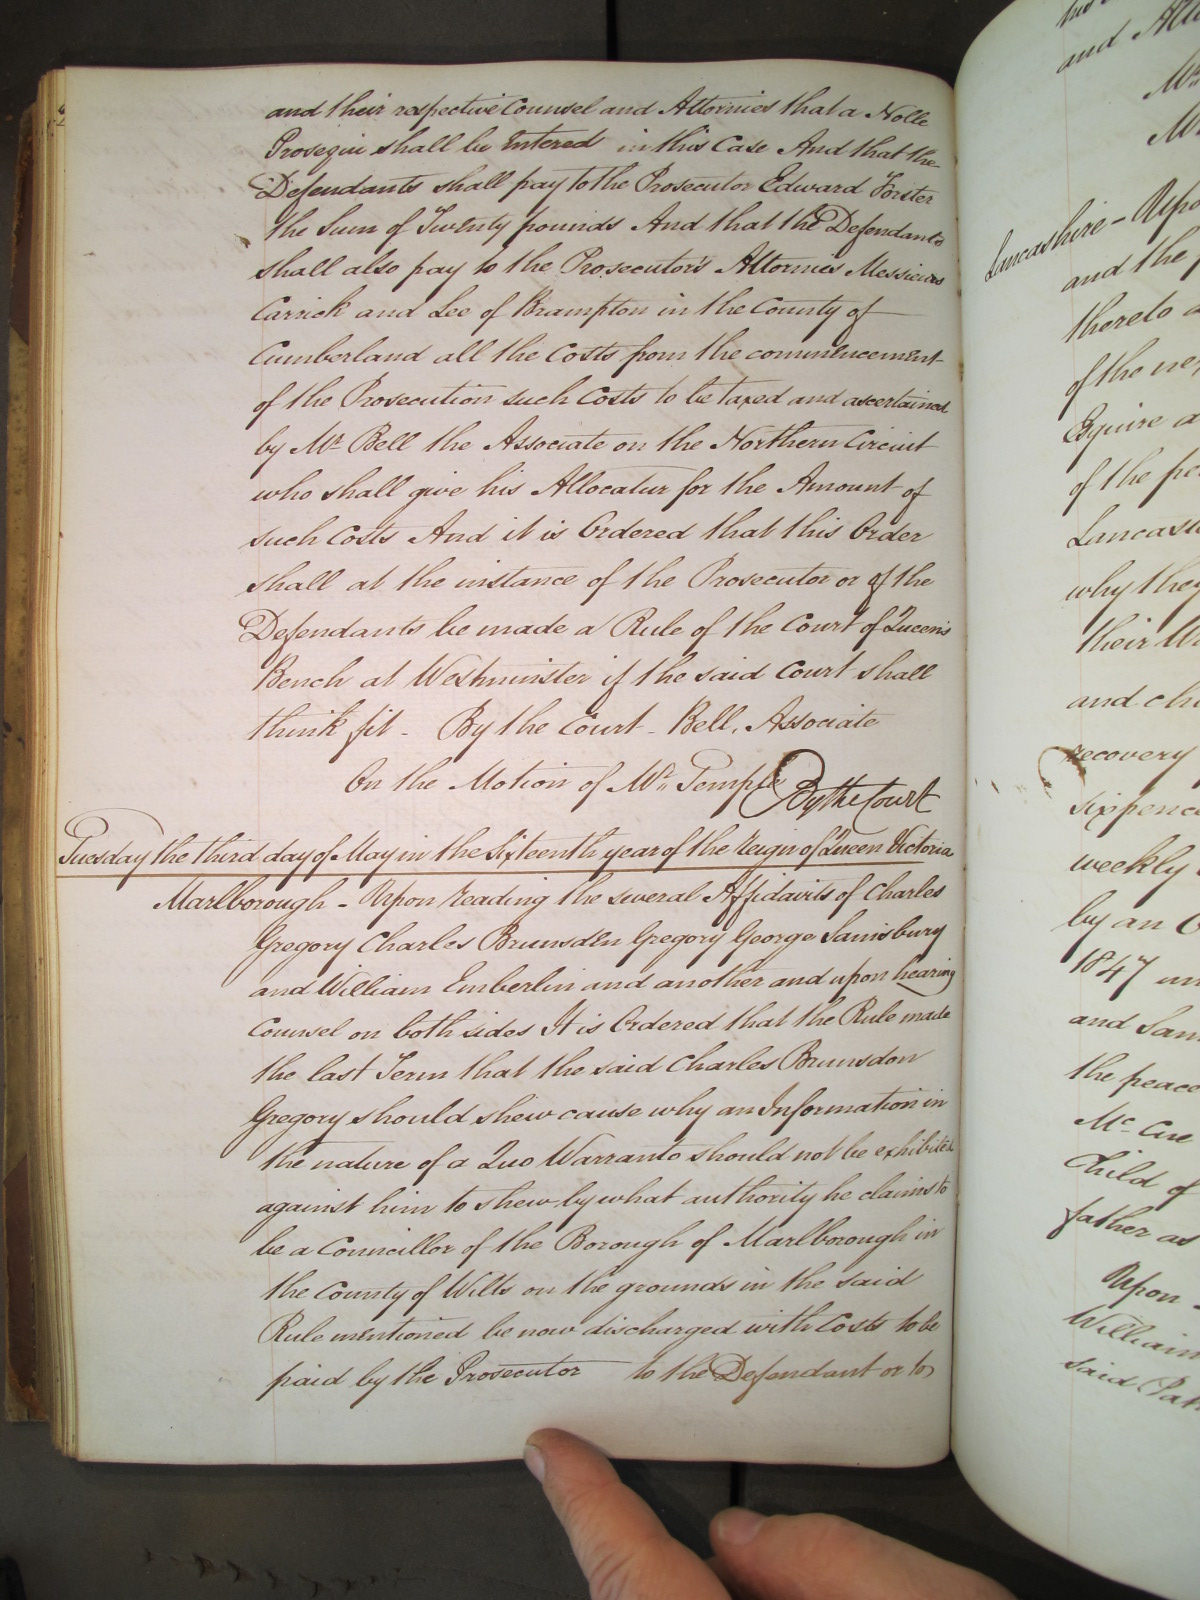 and their respective Counsel and Attornies that a Nolle
Prosequi shall be Entered in this Case And that the
Defendants shall pay to the Prosecutor Edward Forster
the Sum of Twenty pounds And that the Defendants
shall also pay to the Prosecutor's Attornies Messieurs
Carrick and Lee of Brampton in the County of
Cumberland all the Costs from the commencement
of the Prosecution such Costs to be taxed and ascertained
by Mr. Bell the Associate on the Northern Circuit
who shall give his Allocatur for the Amount of
such Costs And it is Ordered that this Order
shall at the instance of the Prosecutor or of the
Defendants be made a Rule of the Court of Queen's
Bench at Westminster if the said Court shall
think fit - By the Court - Bell, Associate
On the Motion of Mr. Temple By the Court
Tuesday the third day of May in the Sixteenth year of the Reign of Queen Victoria
Marlborough - Upon reading the several Affidavits of Charles
Gregory Charles Brunsden Gregory George Sainsbury
and William Emberlin and another and upon hearing
Counsel on both sides It is Ordered that the Rule made
the last Term that the said Charles Brunsdon
Gregory should shew cause why an Information in
the nature of a Quo Warranto should not be exhibited
against him to shew by what authority he claims to
be a Councillor of the Borough of Marlborough in
the County of Wilts on the grounds in the said
Rule mentioned be now discharged with Costs to be
paid by the Prosecutor to the Defendant or to
and
Lancashire -
and the
thereto
of the
Esquire
of the
why they
their
and
recovery
sixpence
weekly
by an
1847
and
the peace
Mc. Cue
Child of
father as
Upon
William
said